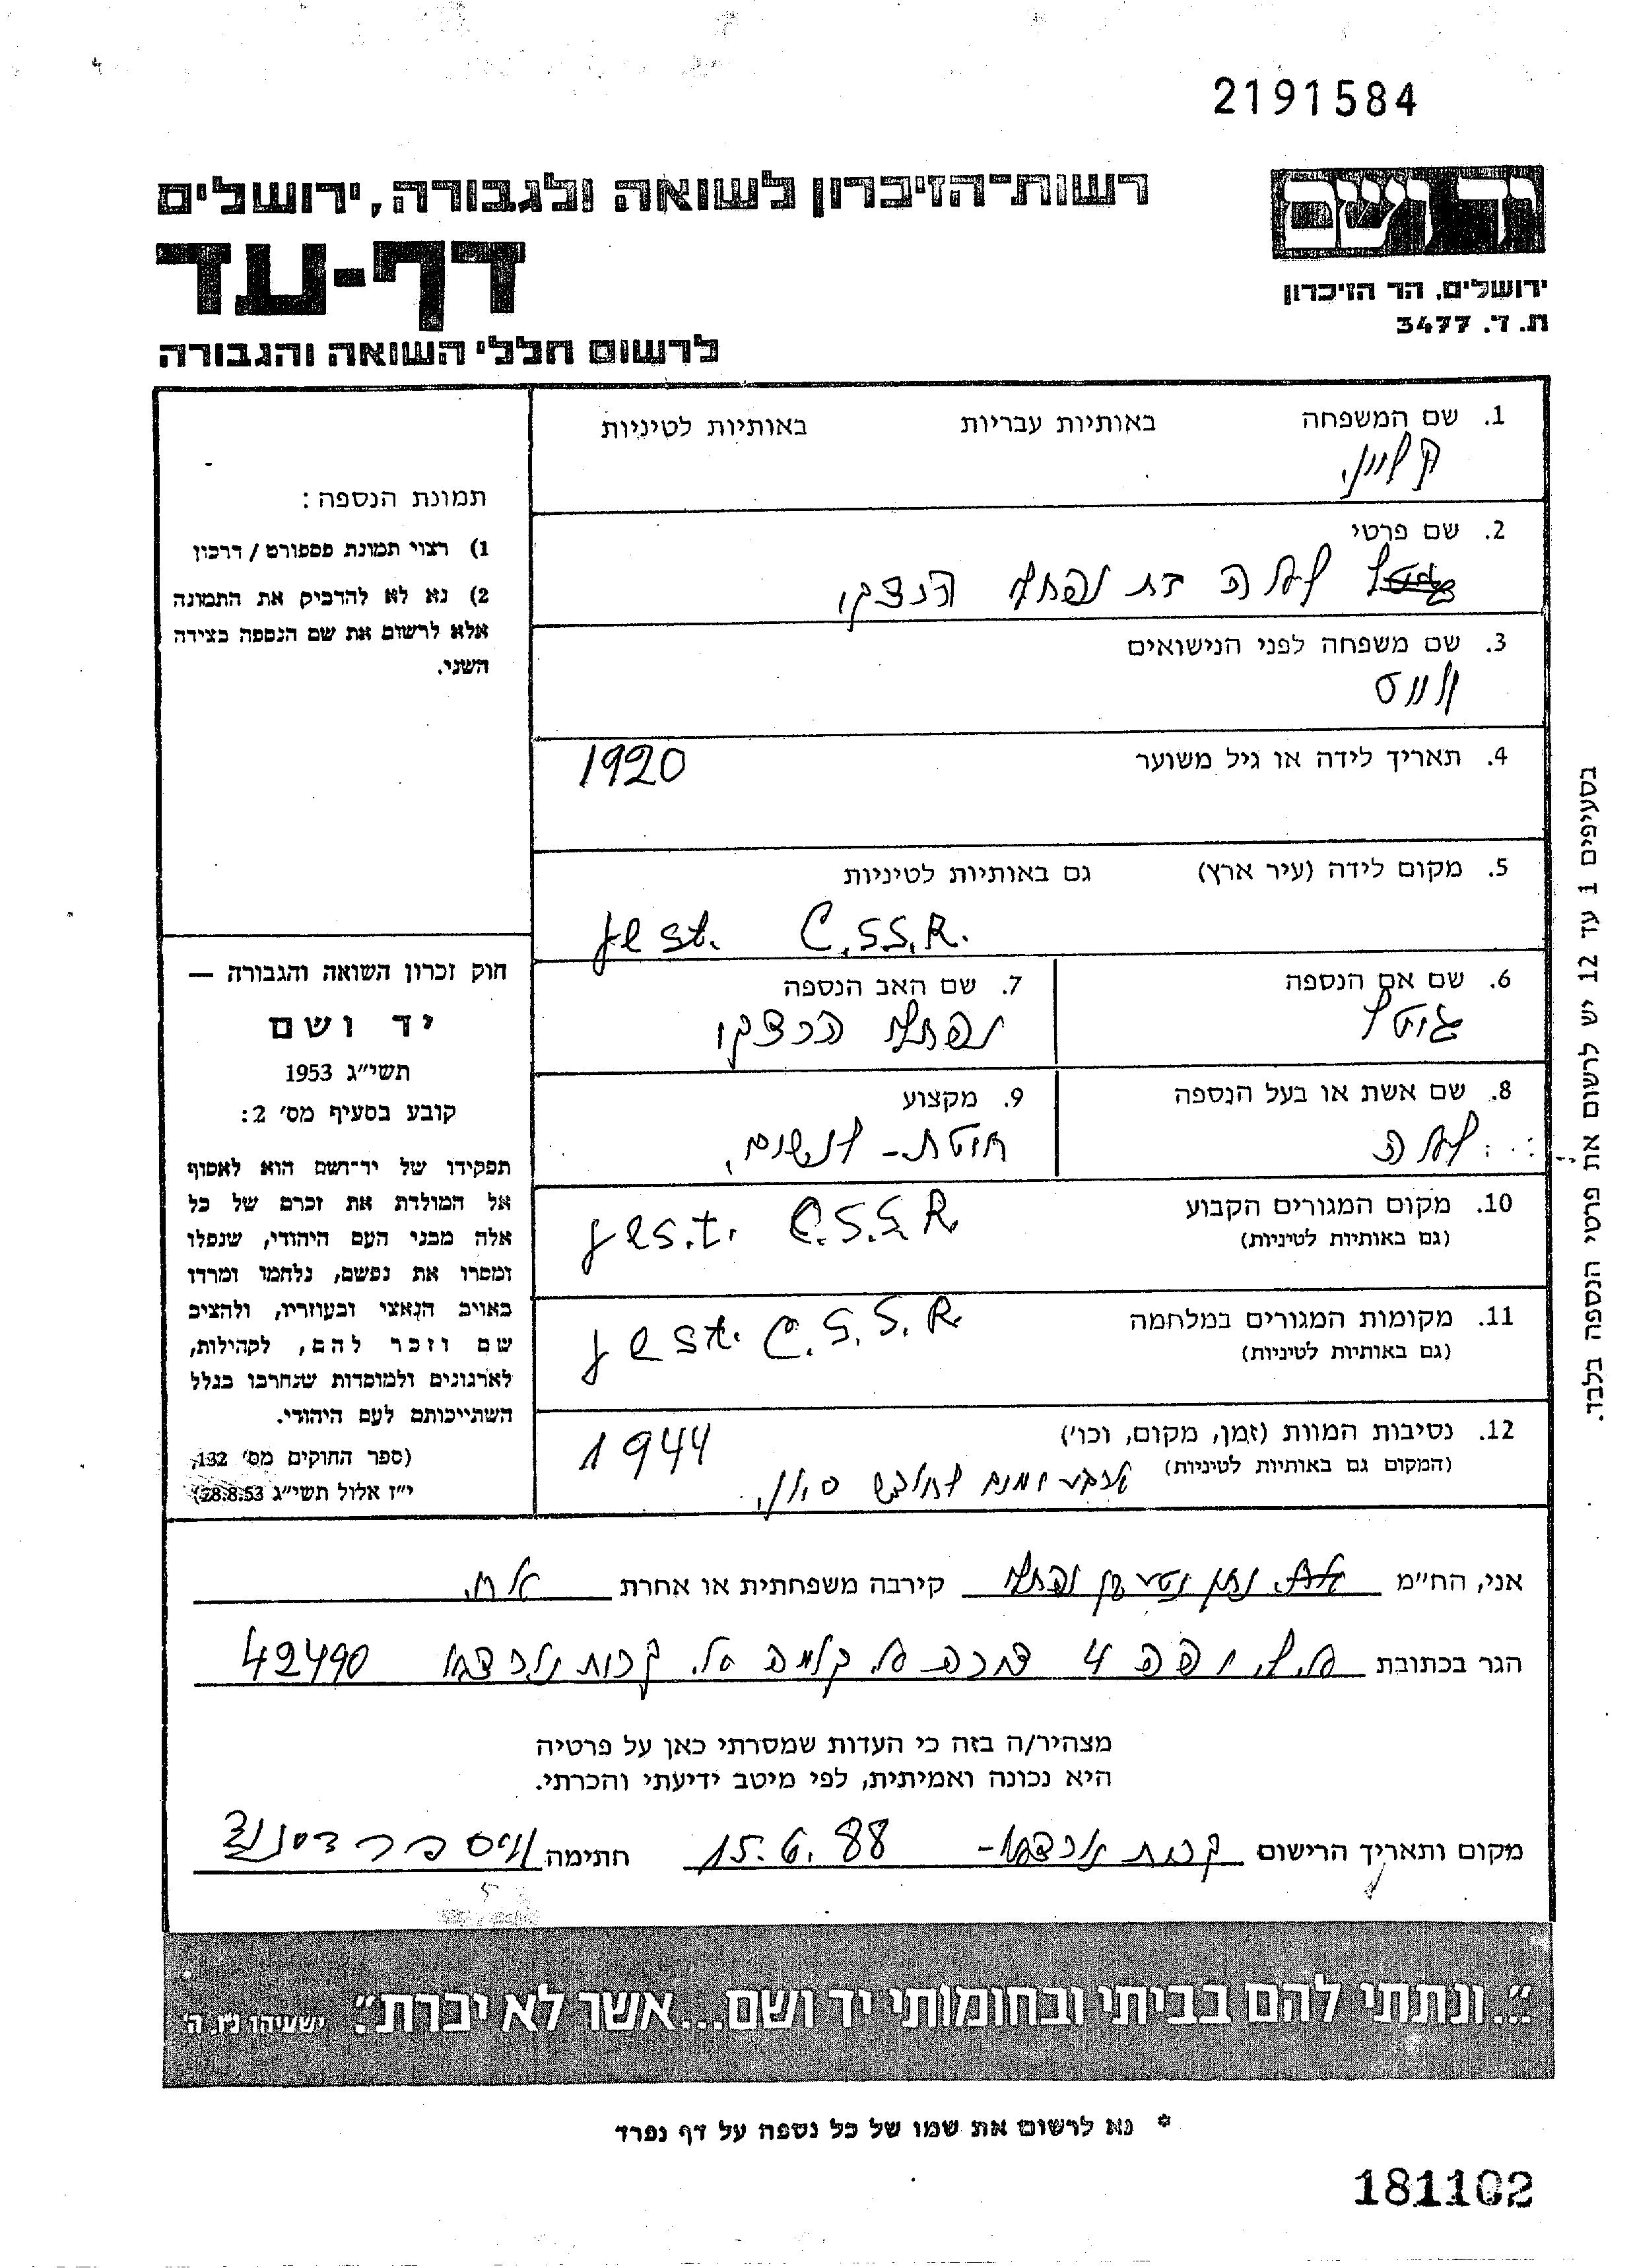 2191584
יד ושם
רשות־הזיכרון לשואה ולגבורה, ירושלים
דף-עד
ירושלים, הר הזיכרון
ת. ד. 3477
לרשום חללי השואה והגבורה
1. שם המשפחה באותיות עבריות באותיות לטיניות
2. שם פרטי
בת נפתלי הרצקו
3. שם משפחה לפני הנישואים
ווייס
4. תאריך לידה או גיל משוער 1920
5. מקום לידה (עיר ארץ) גם באותיות לטיניות
Jest. C.S.S.R.
6. שם אם הנספה
גיטל
7. שם האב הנספה
נפתלי הרצקו
8. שם אשת או בעל הנספה
9. מקצוע
10. מקום המגורים הקבוע
(גם באותיות לטיניות)
Jes.t. C.S.S.R.
11. מקומות המגורים במלחמה
(גם באותיות לטיניות)
Jest. C.S.S.R.
12. נסיבות המוות (זמן, מקום, וכו')
(המקום גם באותיות לטיניות)
1944
תמונת הנספה:
1) רצוי תמונת פספורט / דרכון
2) נא לא להדביק את התמונה
אלא לרשום את שם הנספה בצידה
השני.
חוק זכרון השואה והגבורה —
יד ושם
תשי״ג 1953
קובע בסעיף מס' 2:
תפקידו של יד־ושם הוא לאסוף
אל המולדת את זכרם של כל
אלה מבני העם היהודי, שנפלו
ומסרו את נפשם, נלחמו ומרדו
באויב הנאצי ובעוזריו, ולהציב
שם וזכר להם, לקהילות,
לארגונים ולמוסדות שנחרבו בגלל
השתייכותם לעם היהודי.
(ספר החוקים מס' 132,
י״ז אלול תשי״ג 28.8.53)
בסעיפים 1 עד 12 יש לרשום את פרטי הנספה בלבד.
אני, הח״מ קירבה משפחתית או אחרת
הגר בכתובת 4 42490
מצהיר/ה בזה כי העדות שמסרתי כאן על פרטיה
היא נכונה ואמיתית, לפי מיטב ידיעתי והכרתי.
מקום ותאריך הרישום 15.6.88 חתימה
״...ונתתי להם בביתי ובחומותי יד ושם...אשר לא יכרת״. ישעיהו נ״ו, ה'
* נא לרשום את שמו של כל נספה על דף נפרד
181102